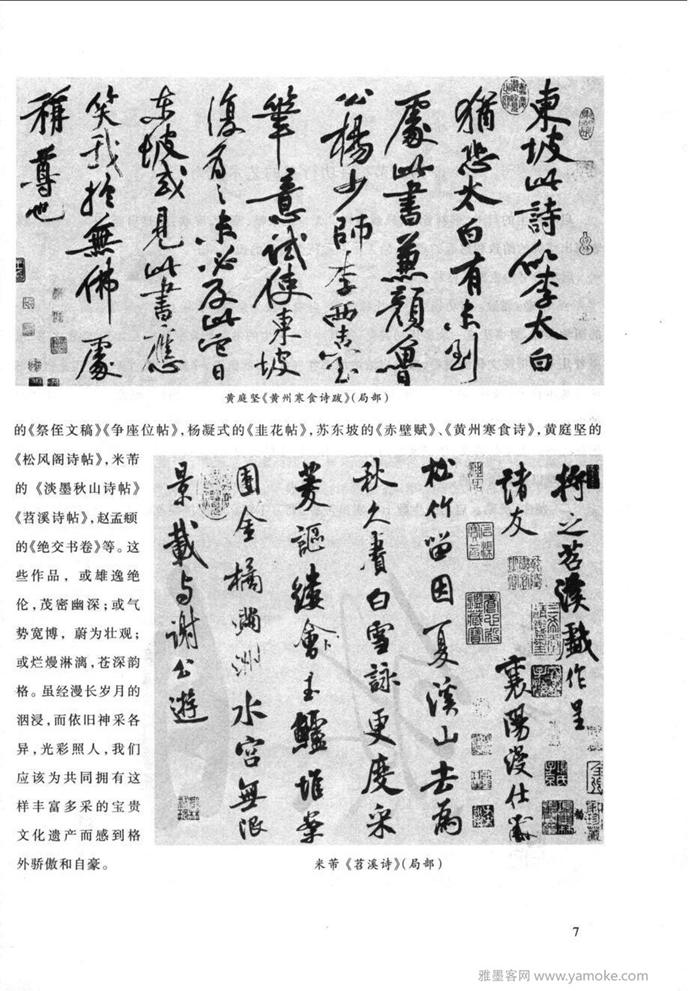 東坡此詩似李太白
猶恐太白有未到
處此書兼顏魯
公楊少師李西臺
筆意試使東坡
復為之未必及此它日
東坡或見此書應
笑我於無佛處
稱尊也
黄庭坚《黄州寒食诗跋》(局部)
的《祭侄文稿》《争座位帖》,杨凝式的《韭花帖》,苏东坡的《赤壁赋》、《黄州寒食诗》,黄庭坚的
《松风阁诗帖》,米芾
的《淡墨秋山诗帖》
《苕溪诗帖》,赵孟頫
的《绝交书卷》等。这
些作品，或雄逸绝
伦,茂密幽深;或气
势宽博，蔚为壮观;
或烂熳淋漓,苍深韵
格。虽经漫长岁月的
洇浸,而依旧神采各
异,光彩照人,我们
应该为共同拥有这
样丰富多采的宝贵
文化遗产而感到格
外骄傲和自豪。
將之苕溪戲作呈
諸友
襄陽漫仕黻
松竹留因夏溪山去為
秋久賡白雪詠更度采
菱謳縷會玉鱸堆案
團金橘滿洲水宮無限
景載与謝公遊
米芾《苕溪诗》(局部)
7
雅墨客网 www.yamoke.com